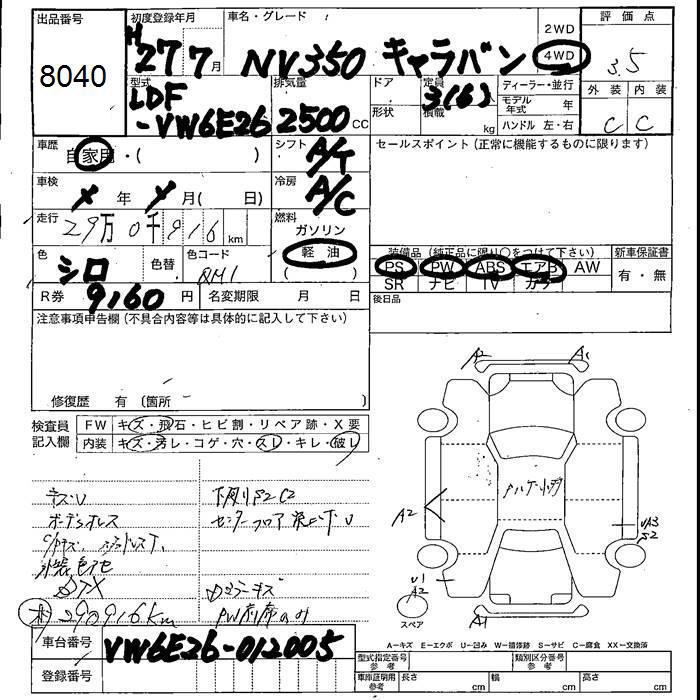 出品番号
8040
初度登録年月
H27 7月
車名・グレード
NV350 キャラバン
2WD
4WD
評価点
3.5
外装 内装
C C
型式
LDF
-VW6E26
排気量
2500 CC
ドア
形状
定員 3(6)
積載 kg
ディーラー・並行
モデル年式 年
ハンドル 左・右
車歴
自家用・( )
シフト
A/T
セールスポイント(正常に機能するものに限ります)
車検
年 月( 日)
冷房
A/C
走行
29万0千916 km
燃料
ガソリン
軽油
( )
色
シロ
色替
色コード
装備品(純正品に限り○をつけて下さい)
PS PW ABS エアB AW
SR ナビ TV カワ
新車保証書
有・無
R券 9160 円
名変期限 月 日
後日品
注意事項申告欄(不具合内容等は具体的に記入して下さい)
修復歴 有(箇所 )
検査員
記入欄
FW キズ・飛石・ヒビ割・リペア跡・X要
内装 キズ・汚レ・コゲ・穴・スレ・キレ・破レ
キズU
下廻りS2C2
290916km
A2 A1
A2
U1
A2
S2
A1
スペア
A-キズ E-エクボ U-凹み W-補修跡 S-サビ C-腐食 XX-交換済
車台番号
VW6E26-012005
登録番号
型式指定番号参考
類別区分番号参考
車庫証明用参考
長さ cm
幅 cm
高さ cm